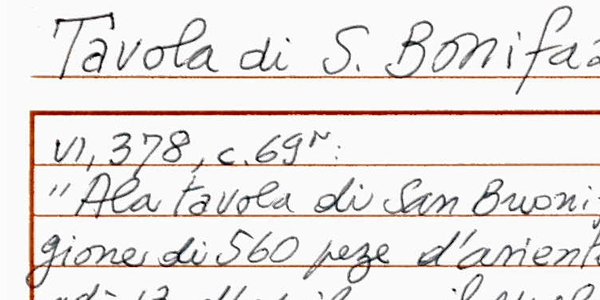 Tavola di S. Bonifa
VI, 378, c. 69r:
"Ala tavola di San Buoni
gione di 560 peze d'ariento
adì 13 d'aprile